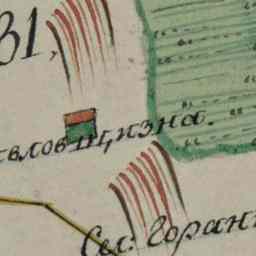 31,
вловщизна.
Сел: Горан